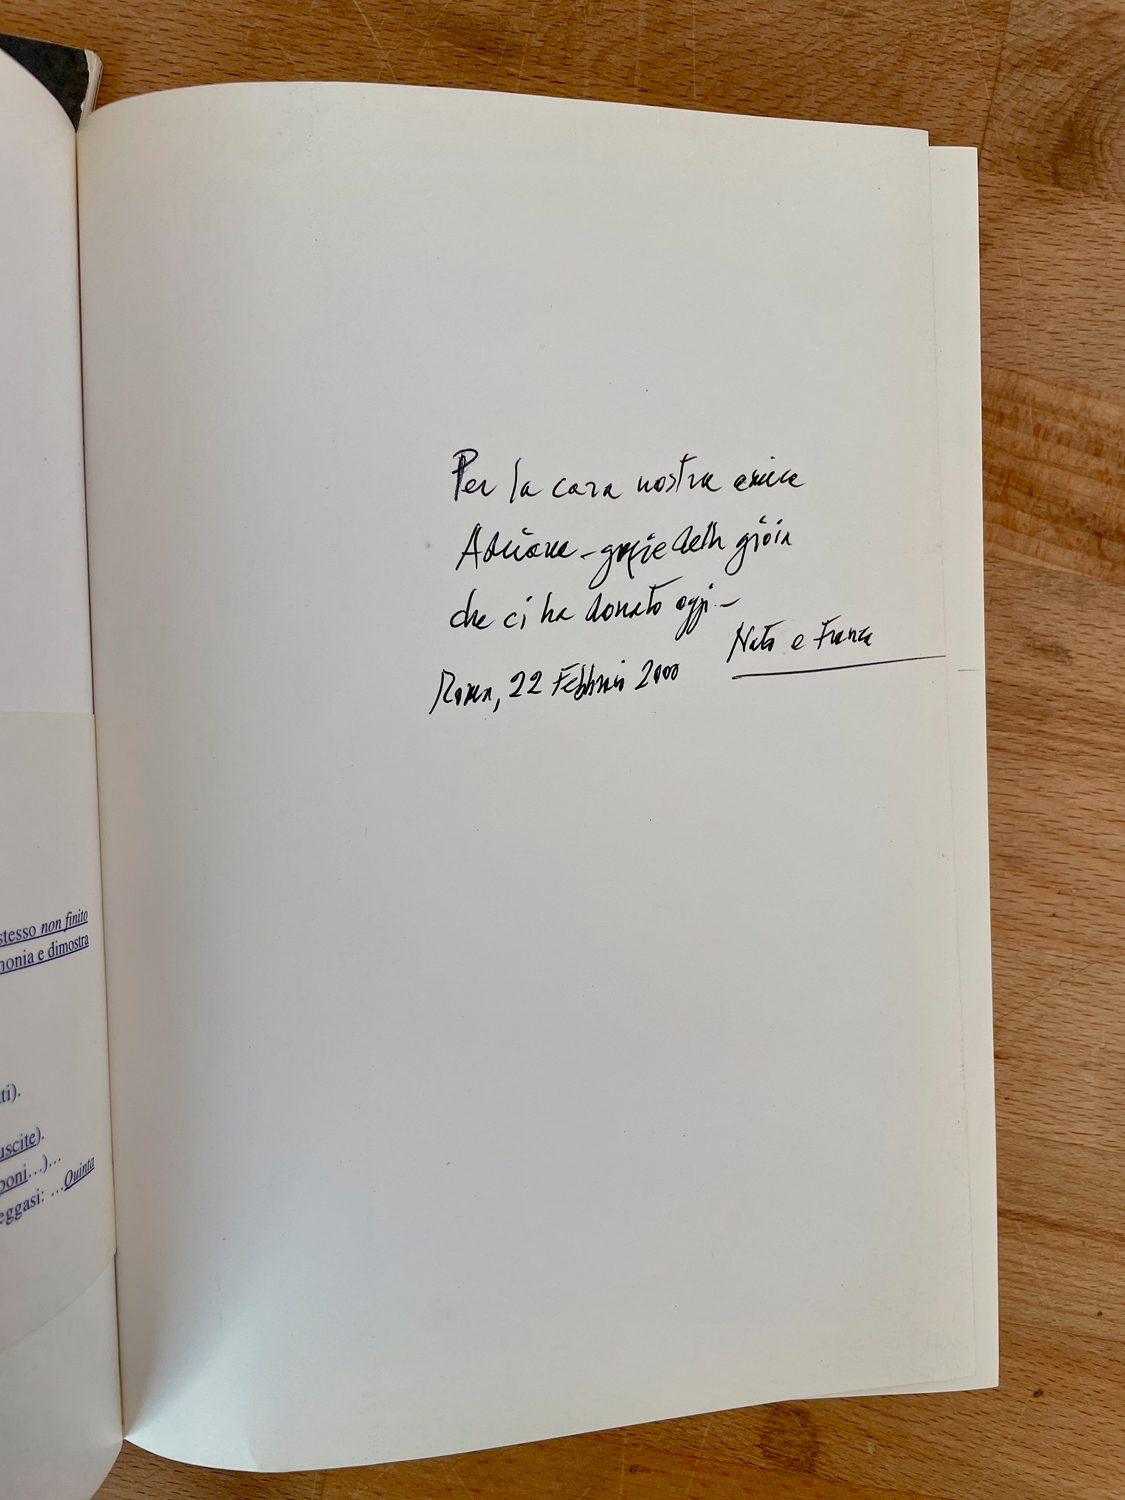 stesso non finito
monia e dimostra
ti).
uscite).
poni...)...
eggasi: ...Quinta
Per la cara nostra amica
Adriana - grazie della gioia
che ci ha donato oggi -
Nato e Franca
Roma, 22 Febbraio 2000